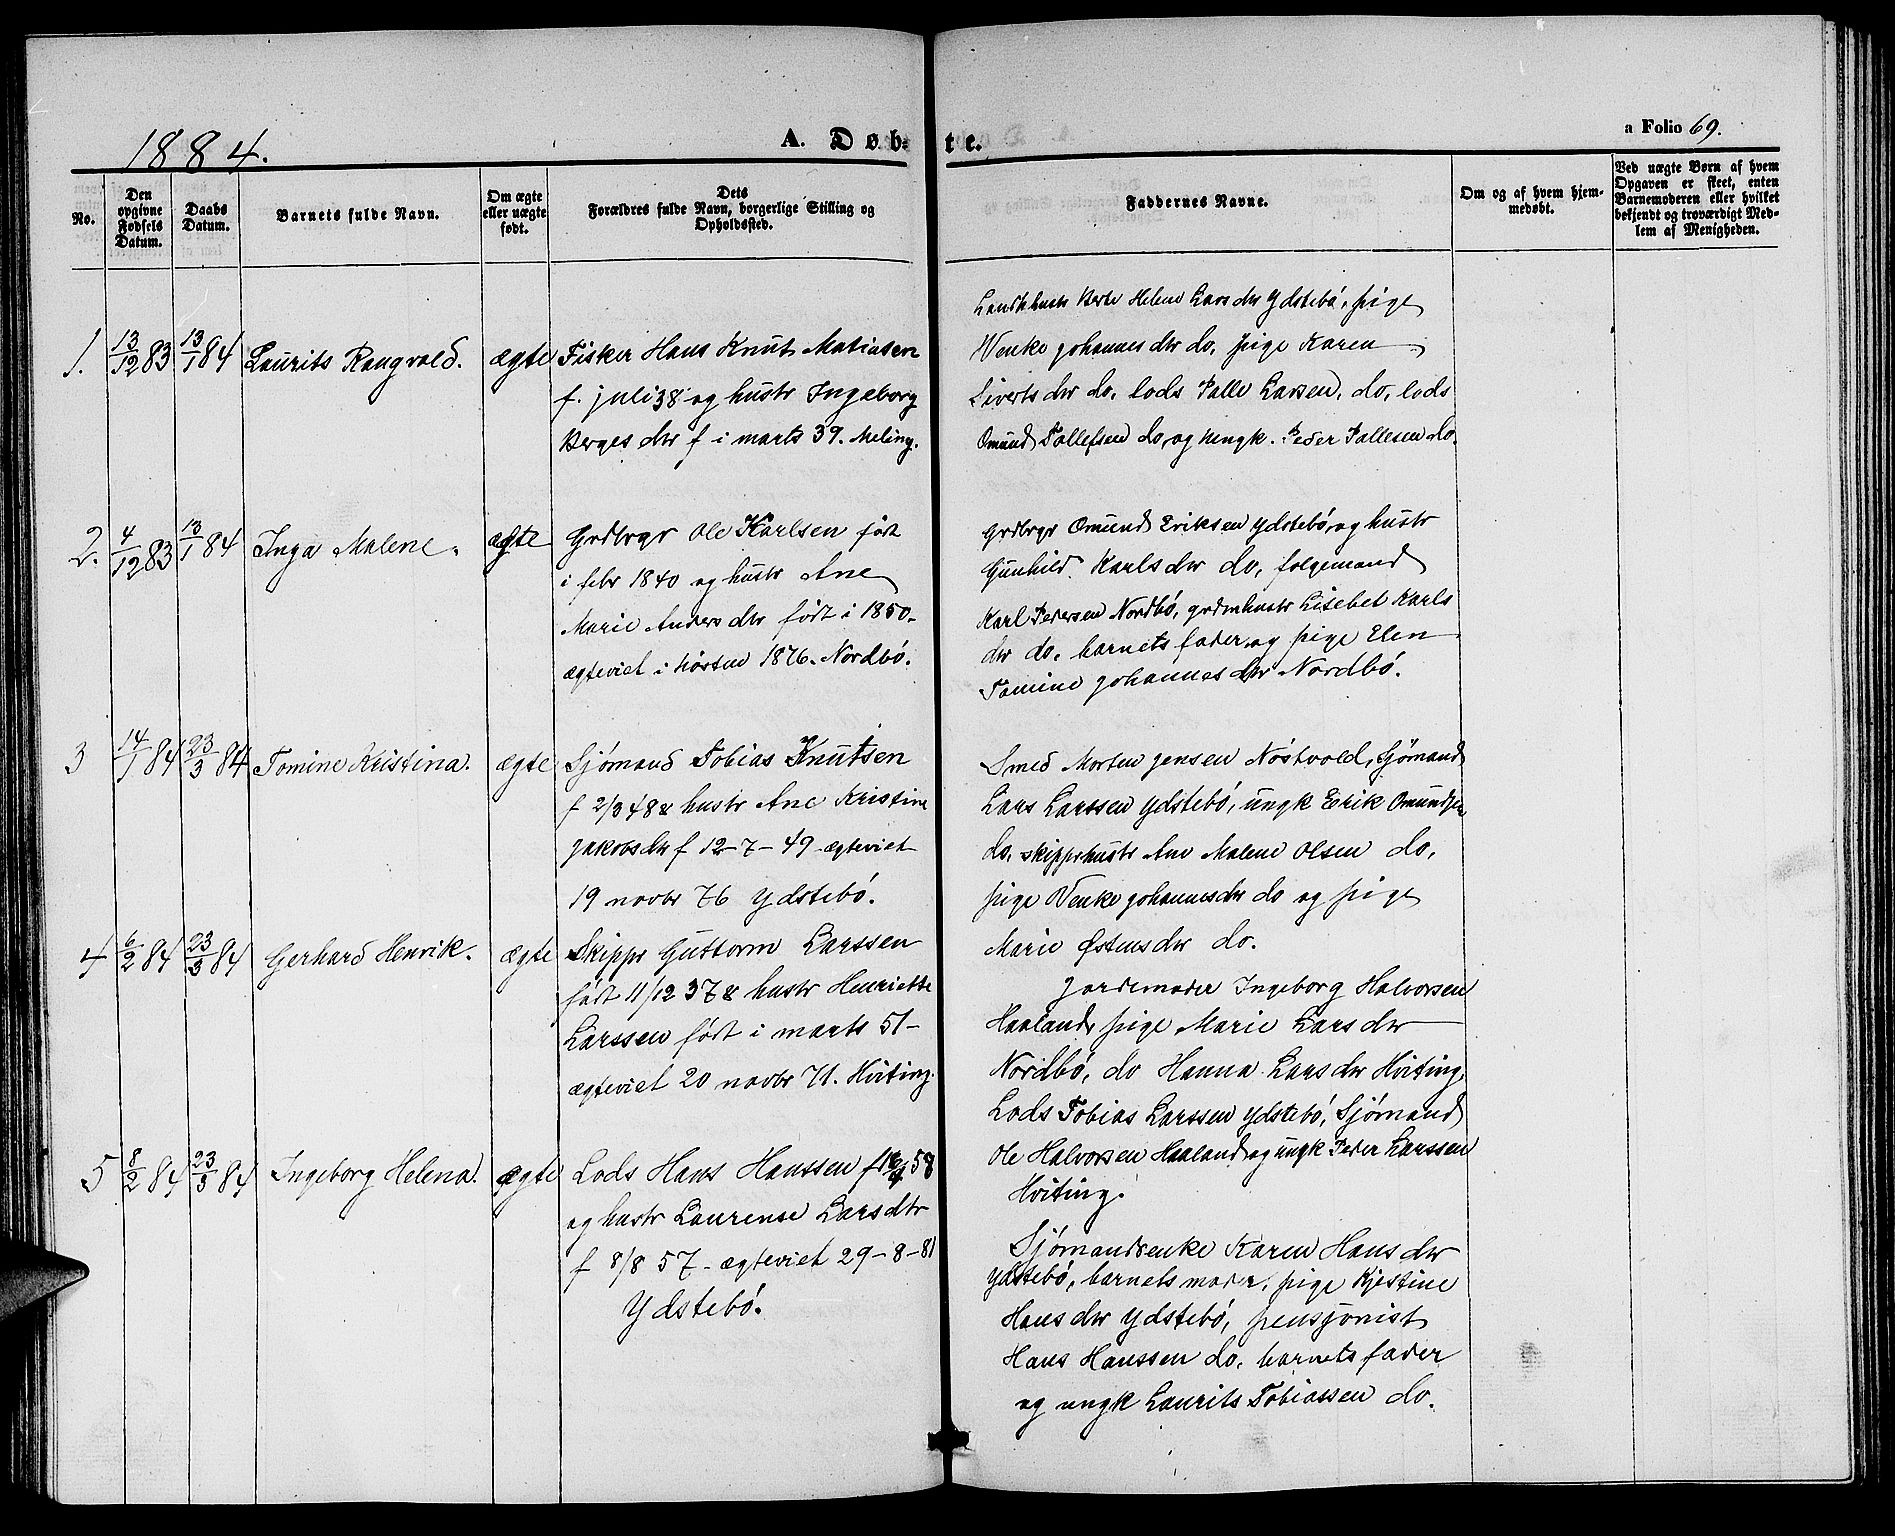 1884.
A. Døb-
te.
a Folio 69.
No.
Den
opgivne
Fødsels
Datum.
Daabs
Datum.
Barnets fulde Navn.
Om ægte
eller uægte
født.
Dets
Forældres fulde Navn, borgerlige Stilling og
Opholdssted.
Faddernes Navne.
Om og af hvem hjem-
medøbt.
Ved uægte Børn af hvem
Opgaven er skeet, enten
Barnemoderen eller hvilket
bekjendt og troværdigt Med-
lem af Menigheden.
1. 13/12 83 13/1 84 Laurits Rangvald. ægte Fisker Hans Knut Matiasen
f. juli 38 og hustr Ingeborg
Berges dtr f i marts 39. Meling.
hustr Berte Helene Lars dtr Ydstebö, pige
Wenke Johannes dtr do, pige Karen
Siverts dtr do, lods Palle Larsen, do, lods
Omund Tollefsen do, og ungk. Peder Pallesen do.
2. 4/12 83 13/1 84 Inga Malene. ægte Grdbrgr Ole Karlsen född
i febr 1840 og hustr Ane
Marie Anders dtr född i 1850.
ægteviet i hösten 1876. Nordbö.
Grdbrgr Omund Eriksen Ydstebö, og hustr
Gunhild Karls dtr do, folgemand
Karl Pedersen Nordbö, grdmhustr Lisebet Karls
dtr do. barnets fader, og pige Elen
Tomine Johannes dtr Nordbö.
3 14/1 84 23/3 84 Tomine Kristina. ægte Sjömand Tobias Knutsen
f 2/3 48 & hustr Ane Kristine
Jakobs dtr f 12-7-49 ægteviet
19 novbr 76 Ydstebö.
Smed Morten Jensen Nöstvold, Sjömand
Lars Larssen Ydstebö, ungk Erik Omundsen
do, skipprhustr Ane Malene Olsen do,
pige Wenke Johannes dtr do og pige
Marie Østens dtr do.
4 6/2 84 23/3 84 Gerhard Henrik. ægte Skippr Guttorm Larssen
född 11/12 37 & hustr Henriette
Larssen född i marts 51-
ægteviet 20 novbr 71. Hviting.
Jordemoder Ingeborg Halvorsen
Haaland, pige Marie Lars dtr
Nordbö, do Hanna Lars dtr Hviting,
Lods Tobias Larssen Ydstebö, Sjömand
Ole Halvorsen Haaland og ungk Peder Larssen
Hviting.
5 8/2 84 23/3 84 Ingeborg Helena. ægte Lods Hans Hanssen f
og hustr Laurense Lars dtr
f 8/8 57- ægteviet 29-8-81
Ydstebö.
Sjömandsenke Karen Hans dtr
Ydstebö, barnets moder, pige Kjestine
Hans dtr Ydstebö, pensjonist
Hans Hanssen do, barnets fader
og ungk Laurits Tobiassen do.